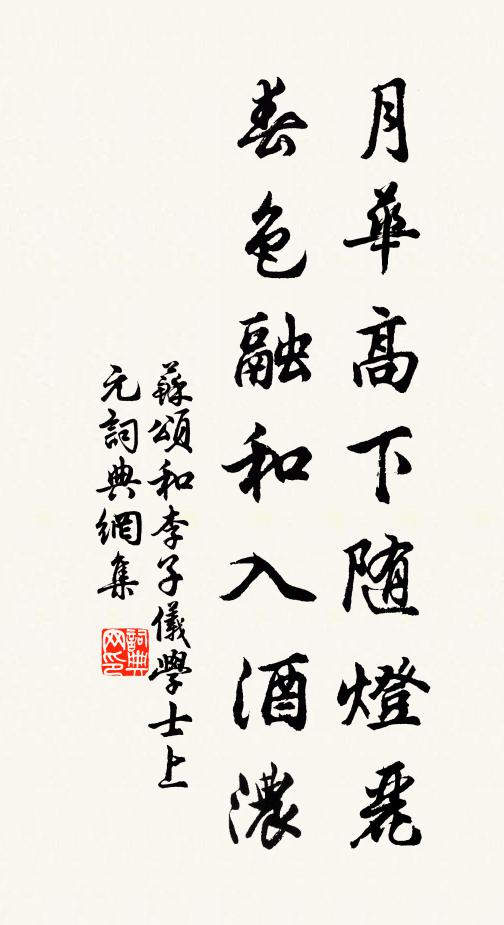 月華高下随燈麗
春色融和入酒濃
蘇頌和李子儀學士上
元詞典網集
詞典网印